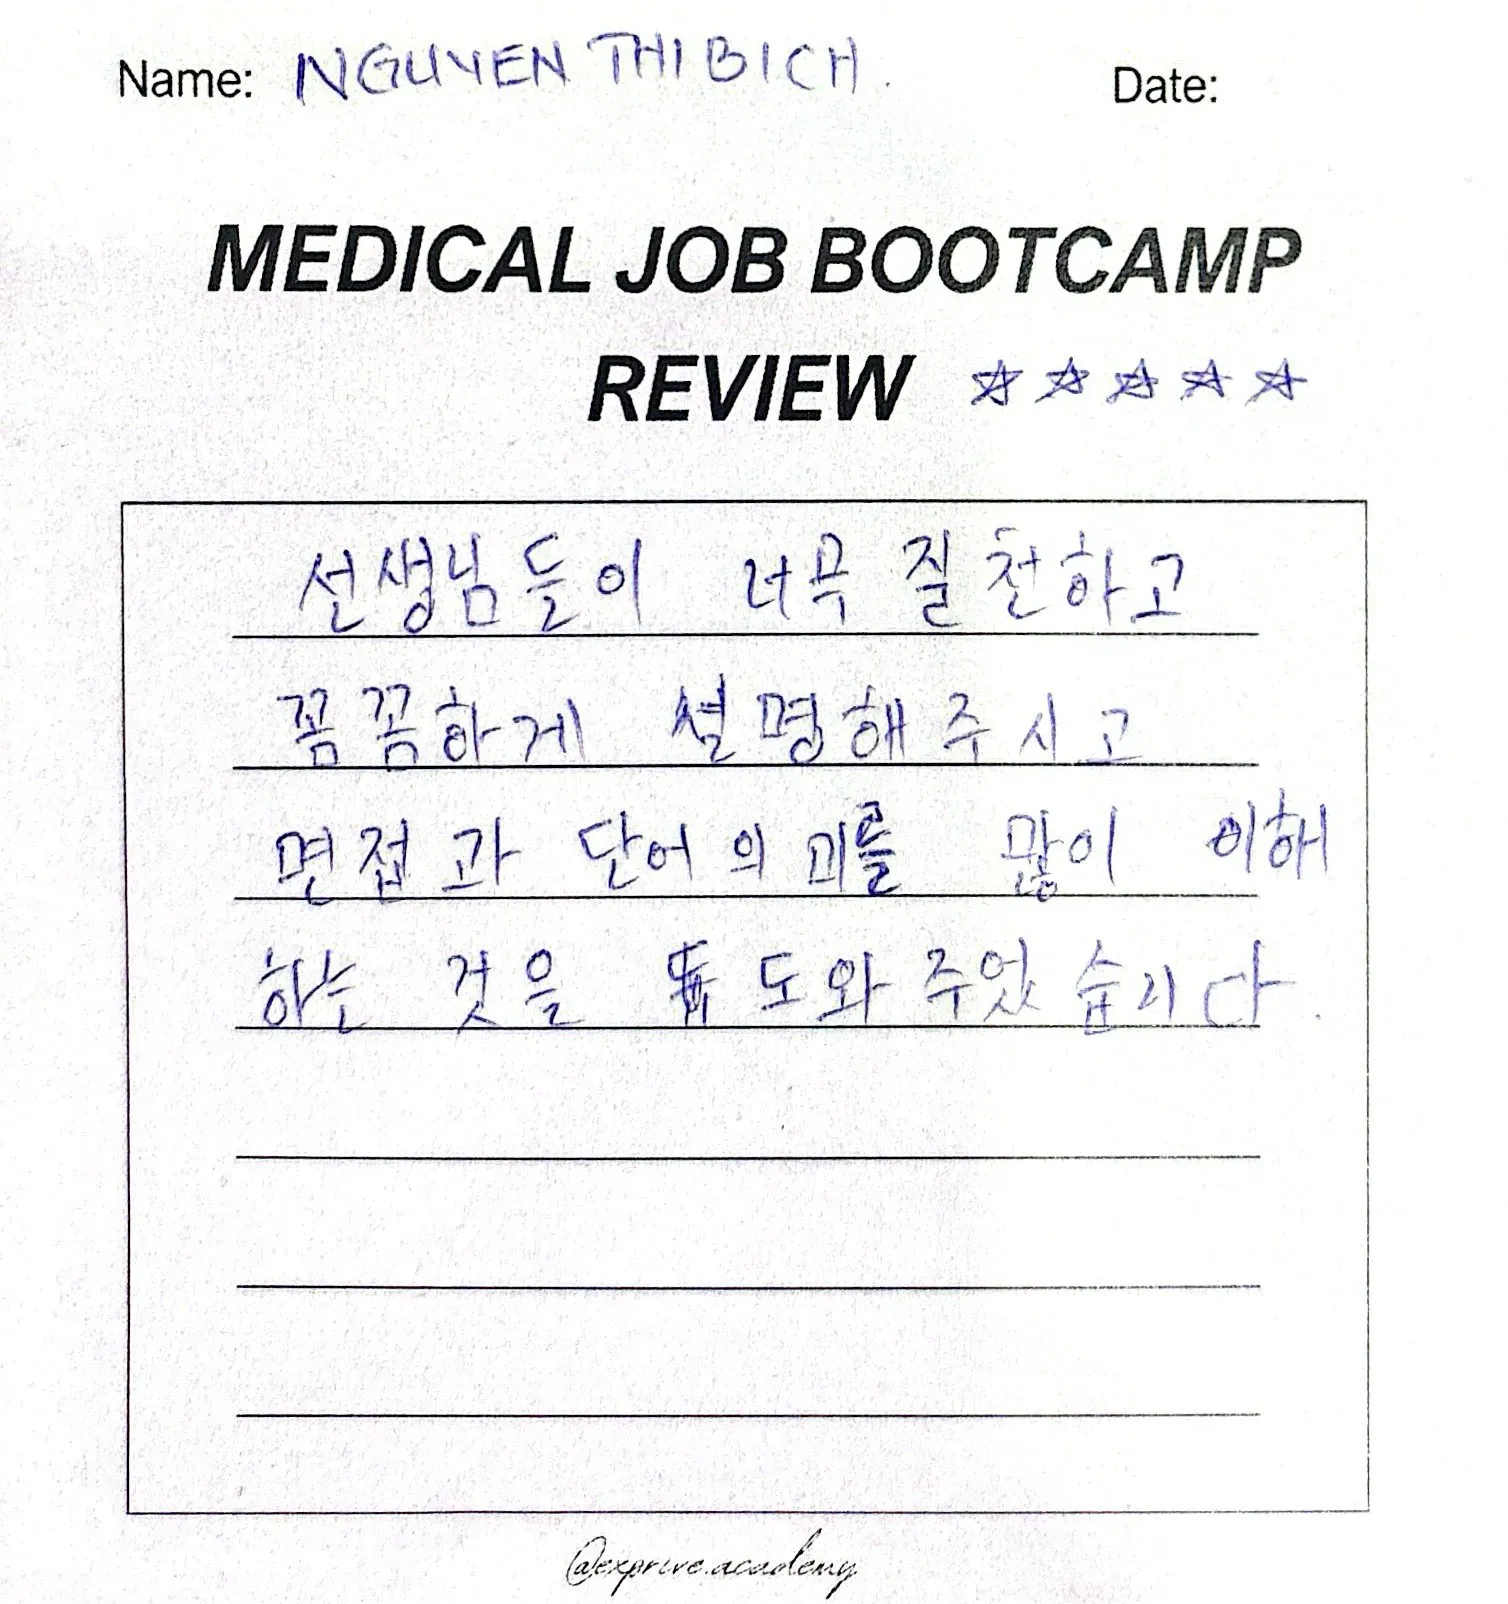 Name: NGUYEN THI BICH.
Date:
MEDICAL JOB BOOTCAMP
REVIEW ☆☆☆☆☆
선생님들이 너무 질천하고
꼼꼼하게 설명해주시고
면접과 단어의 괴를 많이 이해
하는 것을 도와주었습니다.
@exprive.academy